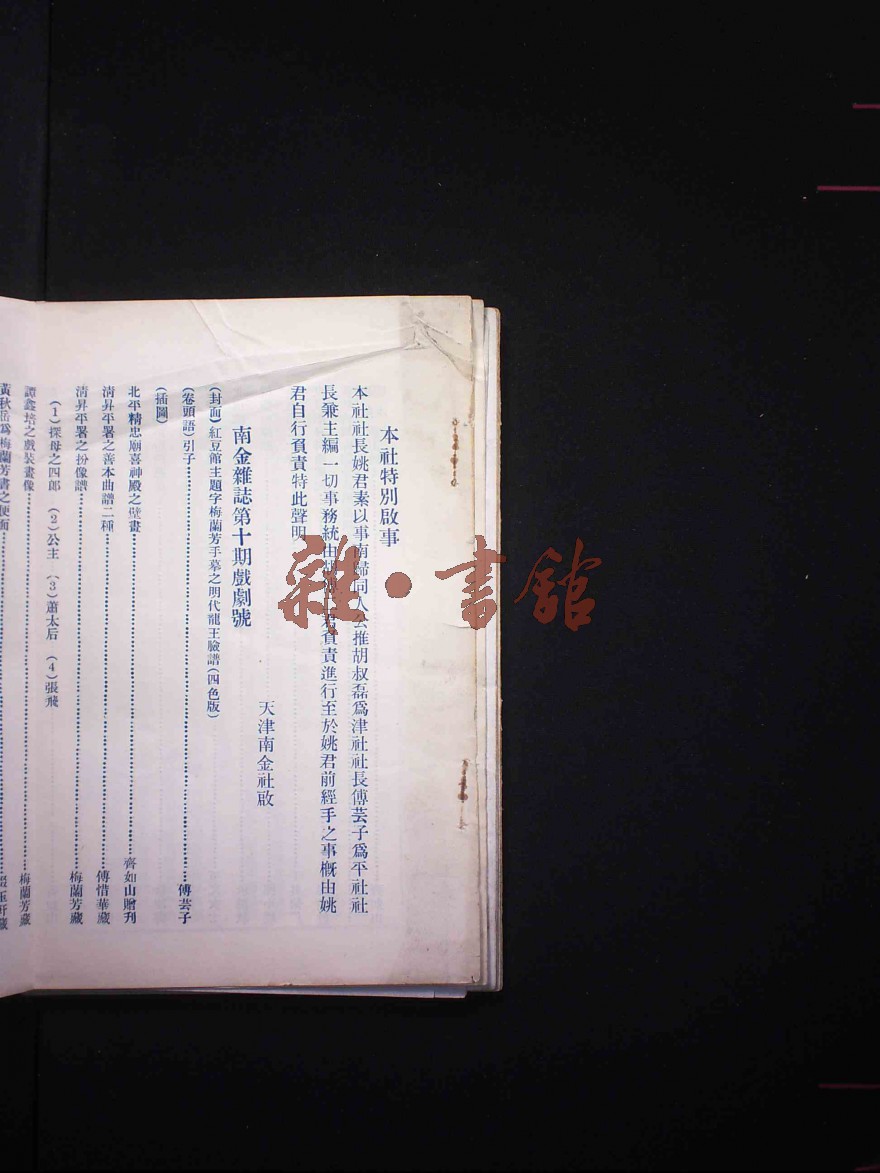 本社特別啟事
本社社長姚君素以事南歸同人公推胡叔磊爲津社社長傅芸子爲平社社
長兼主編一切事務統由 負責進行至於姚君前經手之事概由姚
君自行負責特此聲明
天津南金社啟
南金雜誌第十期戲劇號
(封面)紅豆館主題字梅蘭芳手摹之明代龍王臉譜(四色版)
(卷頭語)引子 傅芸子
(插圖)
北平精忠廟喜神殿之壁畫 齊如山贈刊
清昇平署之善本曲譜二種 傅惜華藏
清昇平署之扮像譜 梅蘭芳藏
(1)探母之四郎 (2)公主 (3)蕭太后 (4)張飛
譚鑫培之戲裝畫像 梅蘭芳藏
黃秋岳爲梅蘭芳書之便面
雜·書館